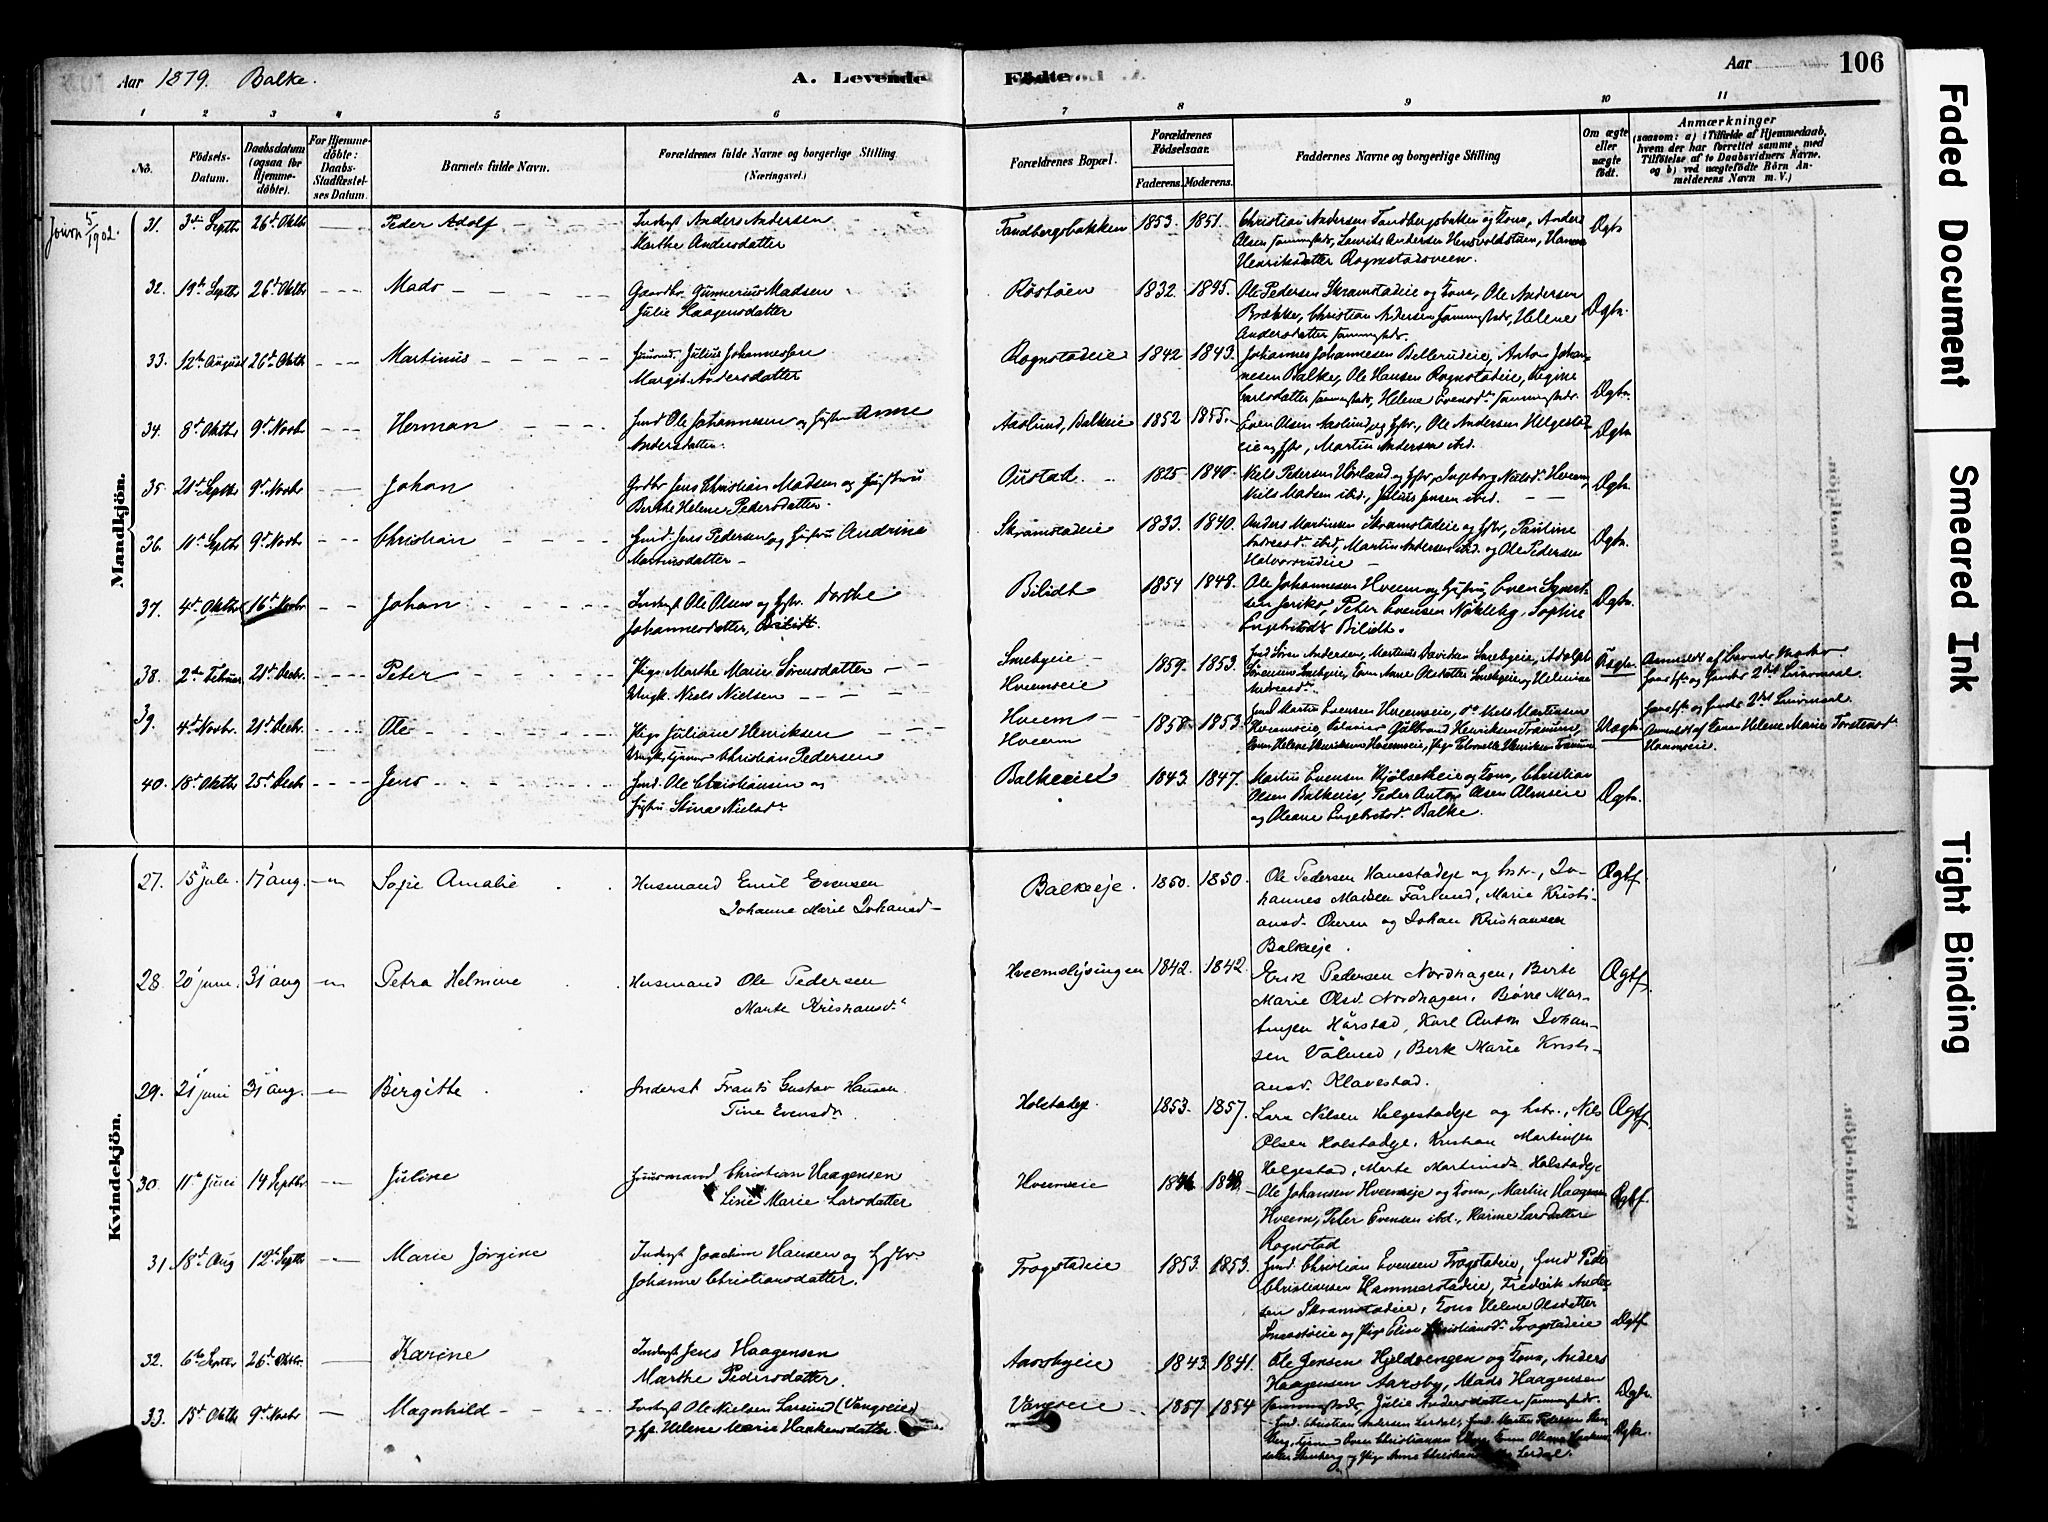 Aar 1879. Balke.
A. Levende Fødte
Aar 106
1 2 3 4 5 6 7 8 9 10 11
No.
Fødsels-Datum.
Daabsdatum (ogsaa for Hjemme-døbte).
For Hjemme-døbte: Daabs-Stadfæstel-ses Datum.
Barnets fulde Navn.
Forældrenes fulde Navne og borgerlige Stilling (Næringsvei.)
Forældrenes Bopæl.
Forældrenes Fødselsaar.
Faderens. Moderens.
Faddernes Navne og borgerlige Stilling
Om ægte eller uægte født.
Anmærkninger
(saasom: a) i Tilfælde af Hjemmedaab, hvem der har forrettet samme, med Tilføielse af to Daabsvidners Navne. og b) ved uægtefødte Børn Anmelderens Navn m. V.)
Mandkjön.
5/1902.
31. 3die Septbr 26d Oktbr Peder Adolf
Anders Andersen
Marthe Andersdatter
Tandbergsbakken 1853. 1851.
Christian Andersen Tandbergsbakken og Kone, Anders
Olsen sammestds, Laurits Andersen
Henriksdatter Rognstadsveen.
32. 19de Septbr 26d Oktbr Mads
Gaardbr. Gunnerius Madsen
Julie Haagensdatter
Røstøen 1832. 1845.
Ole Pedersen Skramstadeie og Kone, Ole Andersen
Brække, Christian Andersen sammestds, Helene
Andersdatter sammestds.
33. 12te August 26d Oktbr Martinus
Huusmd. Julius Johannessen
Margit Andersdatter
Rognstadeie 1842 1843.
Johannes Johannesen Bellerudeie, Anton Johan-
nesen Balke, Ole Hansen Rognstadeie, Regine
Carlsdatter sammestds, Helene Evensdr sammestds.
34. 8d Oktbr 9d Novbr Herman
Hmd Ole Johannesen og Hustru Anne
Andersdatter
Aaslund, Balkeeie 1852 1855.
Even Olsen Aaslund og Hstr., Ole Andersen Helgestad
eie og Hstr, Martin Andersen ibid.
35. 21d Septbr 9d Novbr Johan
Grdbr Jens Christian Madsen og Hustru
Berthe Helene Pedersdatter.
Ourstad 1825 1840.
Niels Pedersen Hörland og Hstr, Ingeborg Nielsdr Hveem,
Niels Madsen ibid., Julius Jensen ibid.
36. 11d Septbr 9d Novbr Christian
Hmd. Jens Pedersen og Hustru Andrine
Martinsdatter
Skramstadeie 1833. 1840.
Anders Martinsen Skramstadeie og Hstr, Pauline
Andreasdr ibid, Martin Andersen ibid. og Ole Pedersen
Halvorrudeie
37. 4d Oktbr 16d Novbr Johan
Inderst Ole Olsen og Hstr. Dorthe
Johannesdatter, Bilidt.
Bilidt 1854 1848.
Ole Johannesen Hveem og Hustru, Even Syvert-
sen, Peter Evensen Nøkleby, Sophie
Engebretsdr Bilidt.
38. 2den Februar 21d Decbr. Peter
Pige Marthe Marie Sørensdatter
Ungk. Niels Nielsen
Smebyeie
Hveemseie
1859. 1853.
Hmd Søren Andersen, Smebyeie, Adolph
Sørensen Smebyeie, Kone Anne Olsdatter Smebyeie og Helmine
Andreasdr.
Uægte.
39. 4d Novbr. 21d Decbr. Ole
Pige Juliane Henriksen
Ungk. tjener Christian Pedersen
Hveems-
Hveem
1858 1853.
Hmd Martin Evensen Hveemseie, Niels Martinsen
Hveemseie, Gulbrand Henriksen
Uægte.
Anmeldt af Kone Helene Marie Torstensdr
40. 18d Oktbr 25d Decbr Jens
Hmd. Ole Christiansen og
Hustru Stina Nielsdr
Balkeeiet 1843. 1847.
Martin Evensen Kjølsetheie og Kone, Christian
Olsen Balkeeie, Peder Anton Olsen Almseie
og Oleane Engebretsdr Balke.
Kvindekjön.
27. 15 juli 17 aug. Sofie Amalie
Husmand Emil Evensen
Johanne Marie Johansd
Balkeeje. 1850. 1850.
Ole Pedersen Hanestadeje og hstr., Jo-
hannes Madsen Farlund, Marie Kristi-
ansd. Oueren og Johan Kristiansen
Balkeeje.
Ægtf
28. 20 juni. 31 aug Petra Helmine
Husmand Ole Pedersen
Marte Kristiansd.
Hveemslysingen 1842. 1842.
Erik Pedersen Nordhagen, Berte
Marie Olsd. Nordhagen, Børre Mar-
tinsen Hårstad, Karl Anton Johan-
sen Vålund, Berte Marie Kristi-
ansd. Klavestad.
Ægtf.
29. 21 juni 31 aug. Birgitte
Inderst Frants Gustav Hansen
Tine Evensdr.
Holstadeje. 1853. 1857.
Lars Nilsen Helgestadeje og hstr., Nils
Olsen Holstadeje, Kristian Martinsen
Helgestad, Marte Martinsdr. Holstadeje
Ægtf.
30. 11te Juni 14 Septbr Juline
Huusmand Christian Haagensen
Line Marie Larsdatter
Hveemeie
Ole Johansen Hveemeie og Kone, Martin Haagensen
Hveem, Peter Evensen ibid., Karine Larsdatter
Rognstad
Ægtf.
31 18d Aug 12te Septbr Marie Jørgine
Inderst Joachim Hansen og Hstr.
Johanne Christiansdatter.
Frogstadeie 1853. 1853.
Hmd. Christian Evensen Frogstadeie, Hmd Peder
Christiansen Hammerstadeie, Fredrik Ander-
sen Skramstadeie, Kone Helene Olsdatter
og Pige Elise Christiansdr Frogstadeie
Ægtf
32. 6te Septbr 26d Oktbr. Karine
Inderst Jens Haagensen
Marthe Pedersdatter.
Aarsbyeie 1843. 1841.
Ole Jensen Hjeldsengen og Kone, Anders
Haagensen Aarsby, Mads Haagensen
sammestds, Julie Andersdatter sammestds.
33. 15d Oktbr 9d Novbr Magnhild
Inderst Ole Nielsen Larsen (Vangseie)
og Hstr. Helene Marie Haakensdatter.
Vangseie 1857 1854
Hmd. Christian Andersen Lerdal, Hmd. Martin Pedersen Sten-
berg, Even Christiansen
Lerdal.
Faded Document
Smeared Ink
Tight Binding